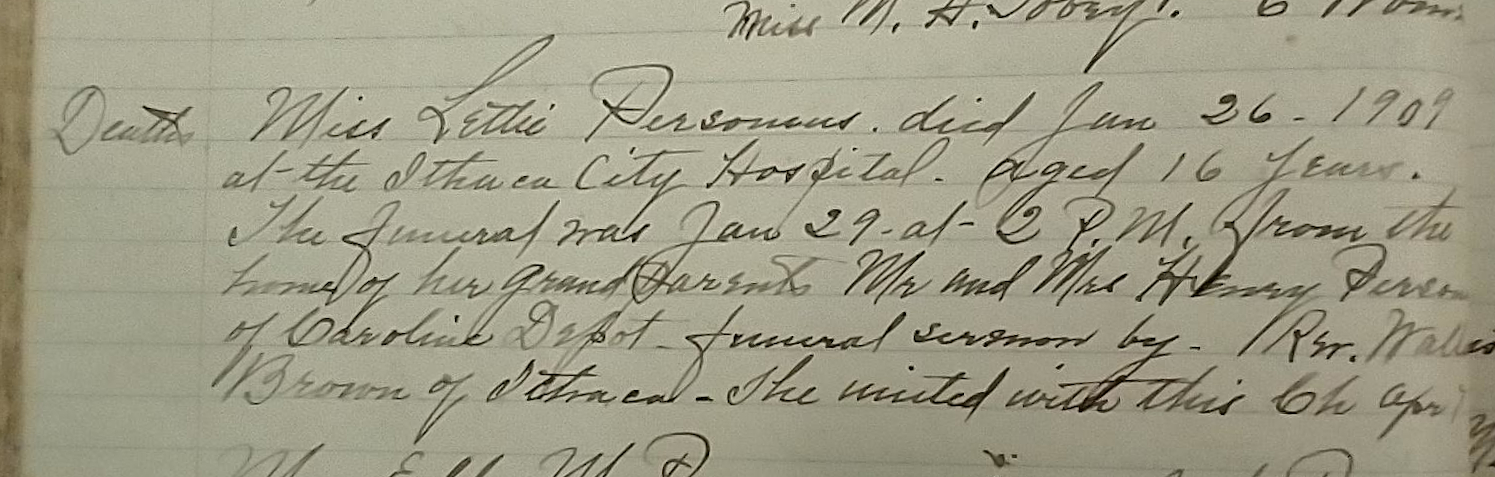 Miss M. H.
Deaths Miss Lettie Personius. died Jan 26 - 1909
at the Ithaca City Hospital. aged 16 Years.
The funeral was Jan 29 - at - 2 P.M. from the
home of her grand Parents Mr and Mrs Henry Person
of Caroline Depot - funeral sermon by - Rev. Wallis
Brown of Ithaca - She united with this Ch Apri